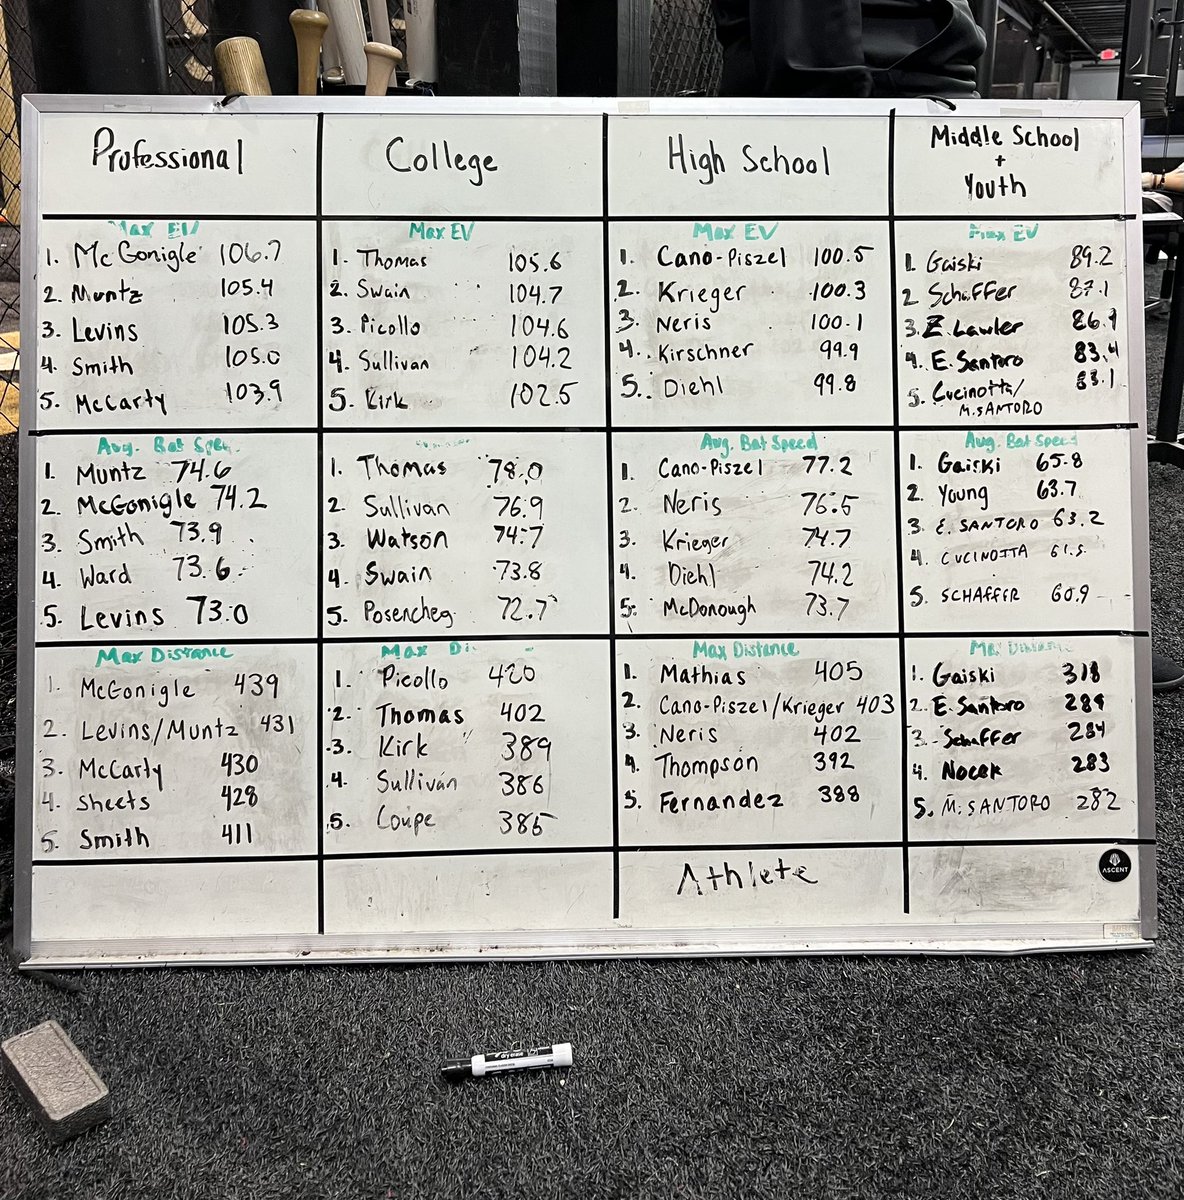 Professional
College
High School
Middle School
+
Youth
Max EV
1. McGonigle 106.7
2. Muntz 105.4
3. Levins 105.3
4. Smith 105.0
5. McCarty 103.9
Max EV
1. Thomas 105.6
2. Swain 104.7
3. Picollo 104.6
4. Sullivan 104.2
5. Kirk 102.5
Max EV
1. Cano-Piszel 100.5
2. Krieger 100.3
3. Neris 100.1
4. Kirschner 99.9
5. Diehl 99.8
Max EV
1. Gaiski 89.2
2 Schaffer 87.1
3. Z. Lawler 86.9
4. E. Santoro 83.4
5. Cucinotta/ 83.1
M. SANTORO
Avg. Bat Spee
1. Muntz 74.6
2. McGonigle 74.2
3. Smith 73.9
4. Ward 73.6
5. Levins 73.0
1. Thomas 78.0
2. Sullivan 76.9
3. Watson 74.7
4. Swain 73.8
5. Posencheg 72.7
Avg. Bat Speed
1. Cano-Piszel 77.2
2. Neris 76.5
3. Krieger 74.7
4. Diehl 74.2
5. McDonough 73.7
Avg. Bat Speed
1. Gaiski 65.8
2. Young 63.7
3. E. SANTORO 63.2
4. CUCINOTTA 61.5
5. SCHAFFER 60.9
Max Distance
1. McGonigle 439
2. Levins/Muntz 431
3. McCarty 430
4. Sheets 428
5. Smith 411
Max Di
1. Picollo 420
2. Thomas 402
3. Kirk 389
4. Sullivan 386
5. Coupe 385
Max Distance
1. Mathias 405
2. Cano-Piszel/Krieger 403
3. Neris 402
4. Thompson 392
5. Fernandez 388
Max Distance
1. Gaiski 318
2. E. Santoro 289
3. Schaffer 284
4. Nocek 283
5. M. SANTORO 282
Athlete
ASCENT
dry erase